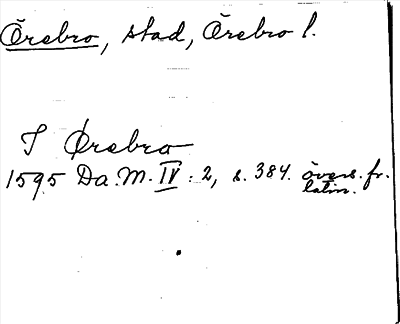 Örebro, stad, Örebro l.
I Ørebro
1595 Da.M. IV:2, s. 384. övers. fr. latin.